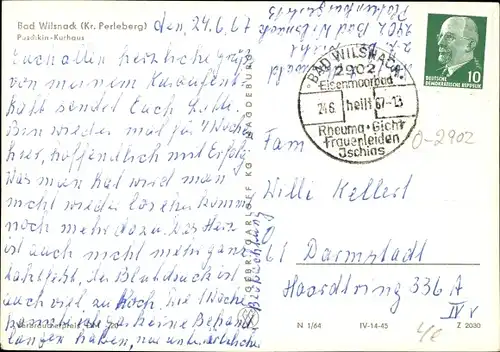 Bad Wilsnack (Kr. Perleberg)
Puschkin-Kurhaus
den, 24.6.67
Euch allen herzliche Grüße
von meinem Kuraufent-
halt sendet Euch
Bin wieder mal für 4 Wochen
hier, hoffentlich mit Erfolg
Was man hat wird man
nicht wieder los, eher kommt
noch mehr dazu. Das Herz
ist auch nicht mehr ganz
taktfest, der Blutdruck ist
auch viel zu hoch, die
keine Behand
lungen haben, nur ärztliche
Beobachtung
2902 Bad Wilsnack
BAD WILSNACK
2902
Eisenmoorbad
24.6. heilt 67-13
Rheuma · Gicht
Frauenleiden
Ischias
DEUTSCHE
DEMOKRATISCHE REPUBLIK
10
O-2902
Fam
Willi Kellert
61 Darmstadt
Haardtring 336 A
IV r
GEBR. GARLOFF KG MAGDEBURG
N 1/64 IV-14-45 Z 2030
4e